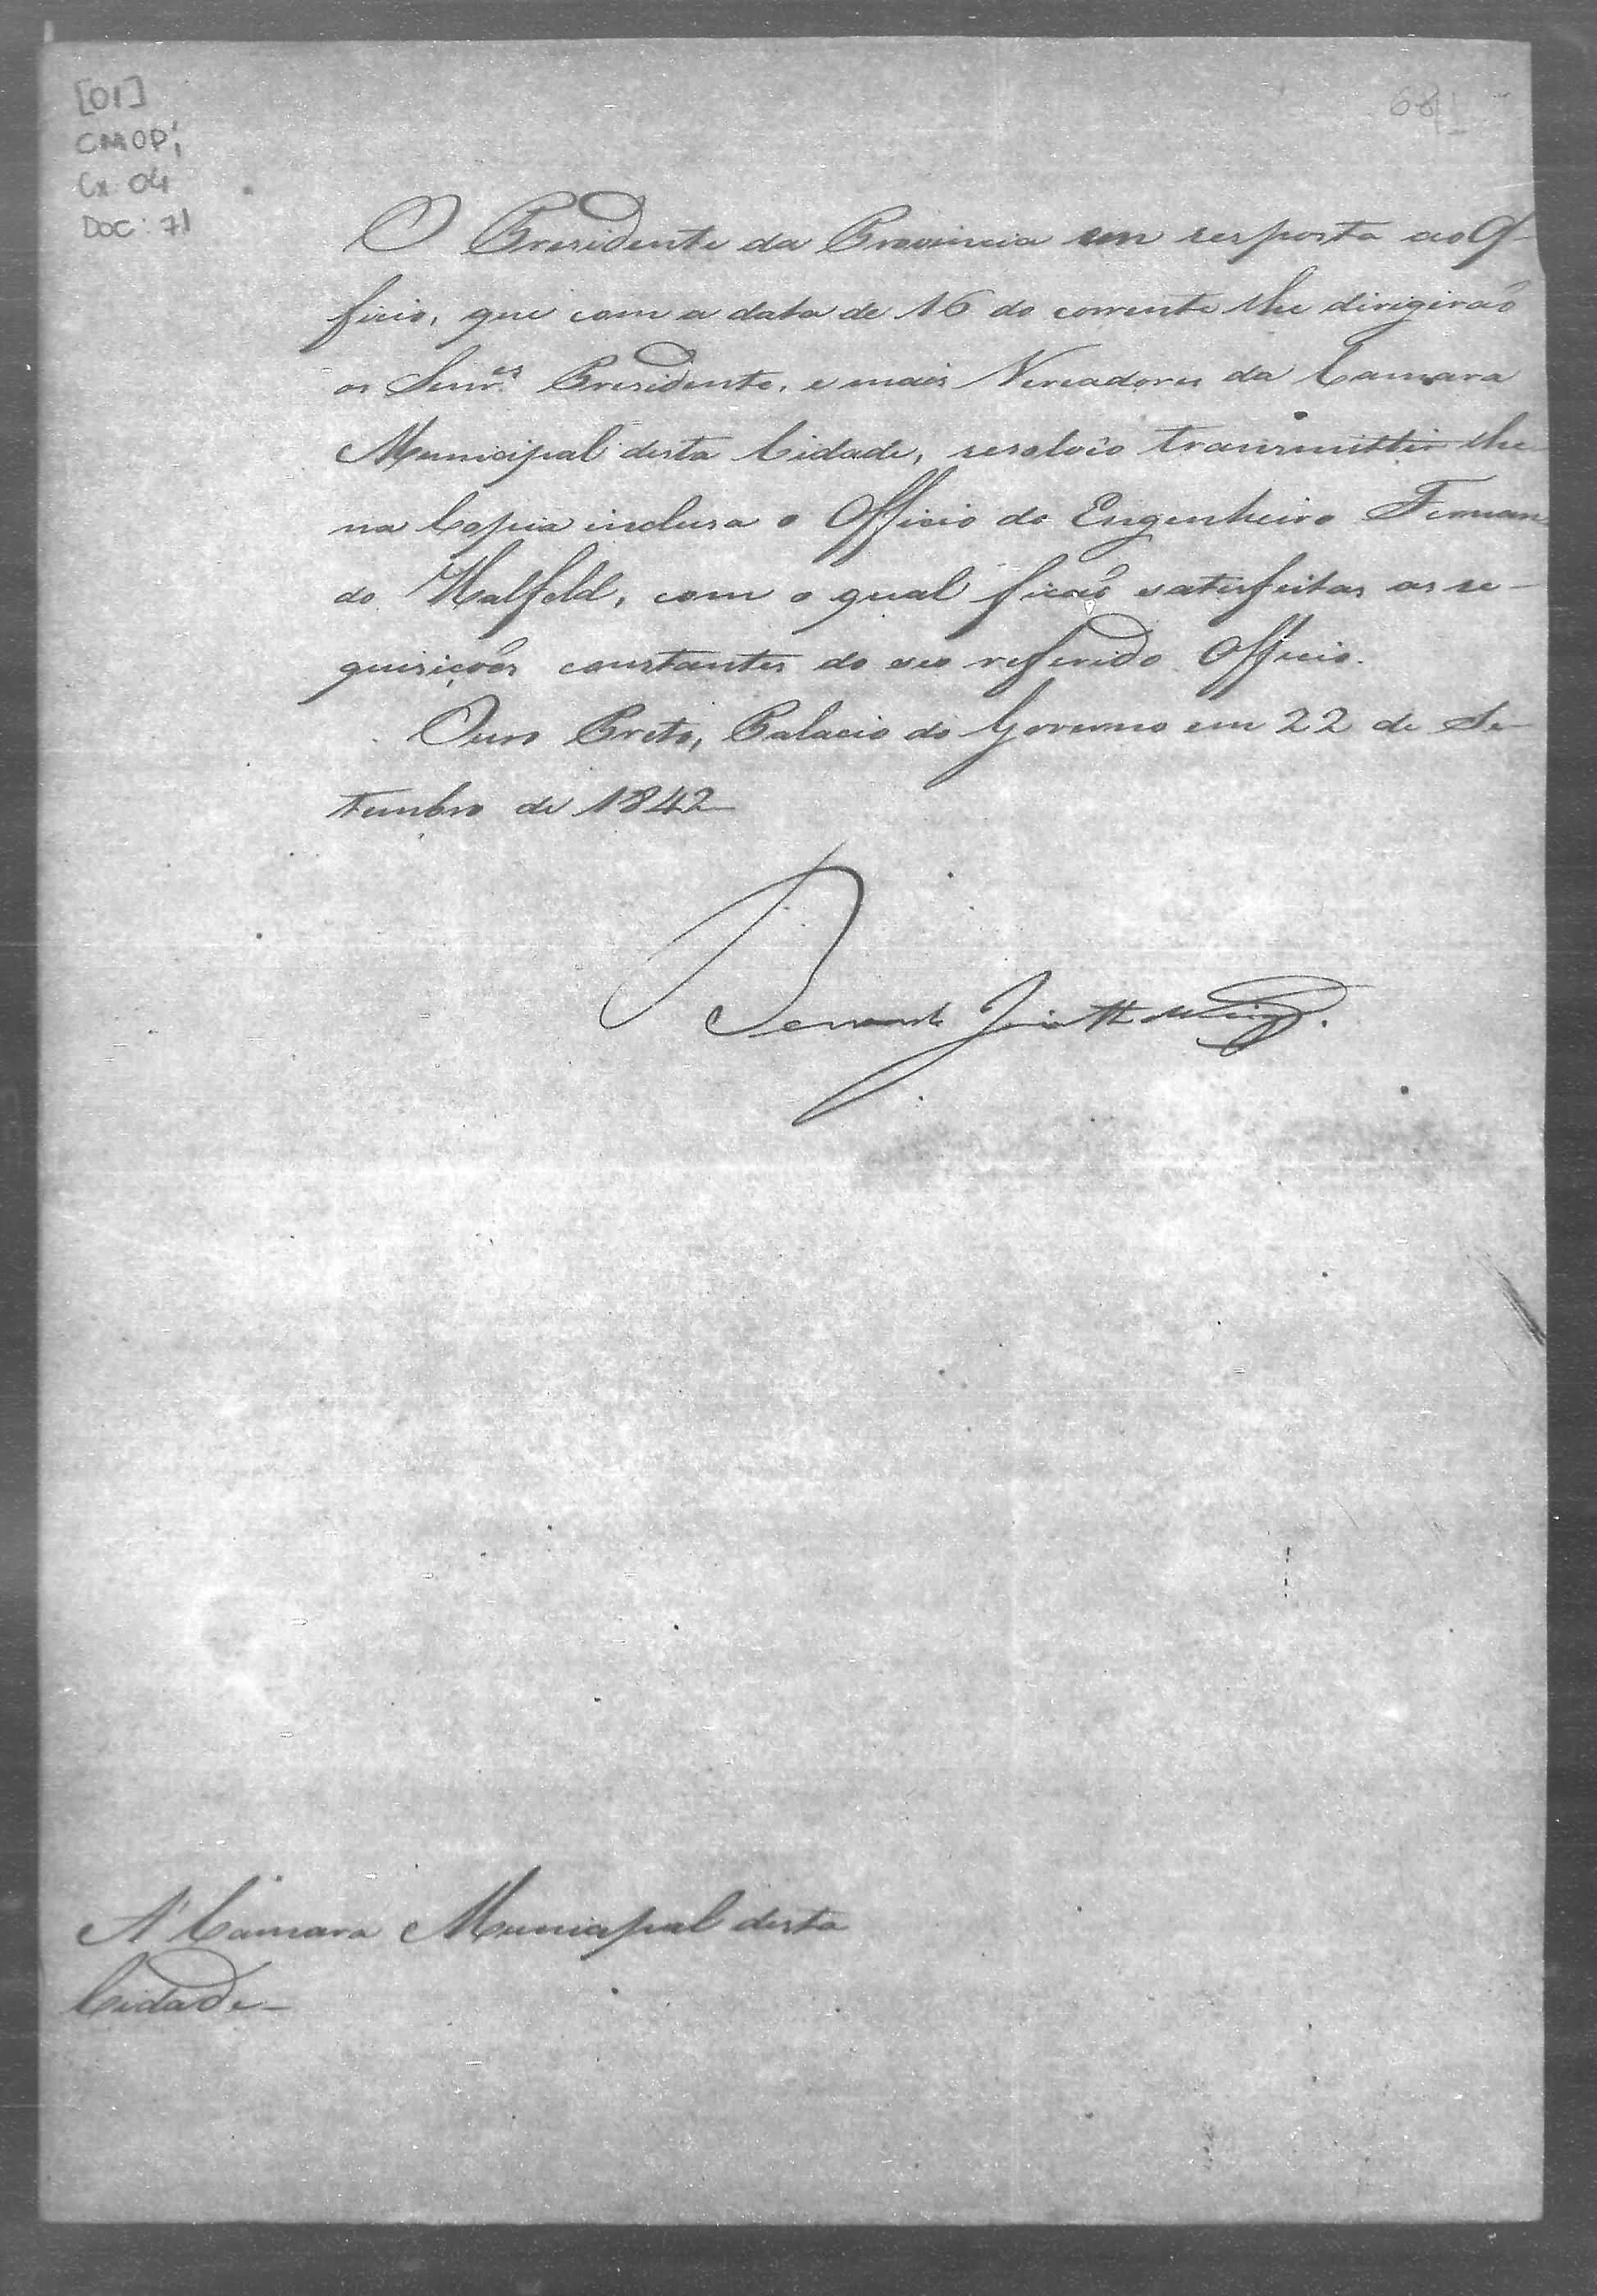 [01]
CMOP,
Cx: 04
Doc: 71
O Presidente da Provincia em resposta ao Of-
ficio, que com a data de 16 do corrente lhe dirigirão
os Senr.es Presidente, e mais Vereadores da Camara
Municipal desta Cidade, resolvêo transmittir lhe
na Copia inclusa o Officio do Engenheiro Fernan
do Halfeld, com o qual ficão satisfeitas as re-
quisiçoẽs constantes do seo referido Officio.
Ouro Preto, Palacio do Governo em 22 de Se-
tembro de 1842
Bernardo
A' Camara Municipal desta
Cidade